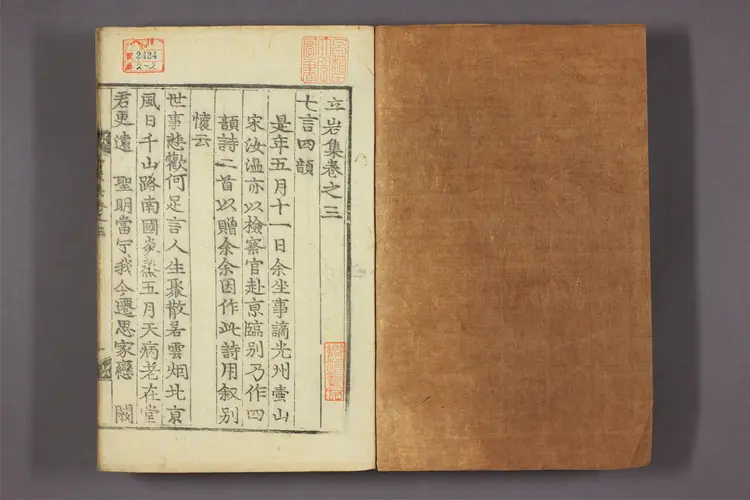 立岩集卷之三
七言四韻
是年五月十一日余坐事謫光州壺山
宋汝溫亦以檢察官赴京臨别乃作四
韻詩二首以贈余余因作此詩用叙别
懷云
世事悲歡何足言人生聚散若雲烟北京
風日千山路南國炎蒸五月天病老在堂
君更遠 聖明當宁我今遷思家戀 闕
2424
2-2